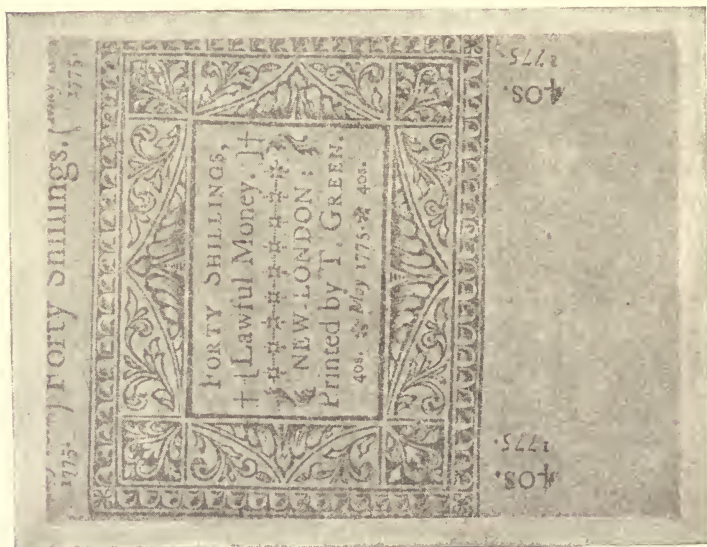 Forty Shillings. (
1775. 1775.
FORTY SHILLINGS,
† [Lawful Money.]†
NEW-LONDON:
Printed by T. GREEN.
40s. May 1775. 40s.
1775. 1775.
40s. 40s.